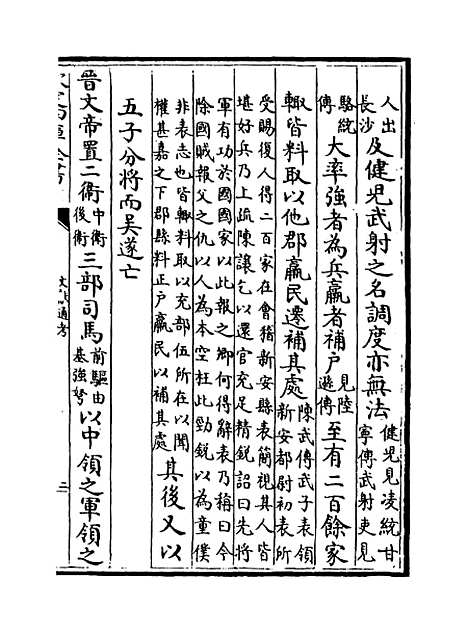 人出長沙及健児武射之名調度亦無法健児見凌統甘寧傳武射吏見
駱統傳大率強者為兵羸者補户見陸遜傳至有二百餘家
輙皆料取以他郡羸民遷補其處陳武傳武子表領新安都尉初表所
受賜復人得二百家在會稽新安縣表簡視其人皆
堪好兵乃上疏陳讓乞以還官充足精銳詔曰先將
軍有功於國國家以此報之卿何得辭表乃稱曰今
除國賊報父之仇以人為本空枉此勁銳以為童僕
非表志也皆輙料取以充部伍所在以聞權甚嘉之下郡縣料正户羸民以補其處其後又以
五子分將而吳遂亡
晉文帝置二衛中衛後衛三部司馬前驅由基強弩以中領之軍領之
文獻通考